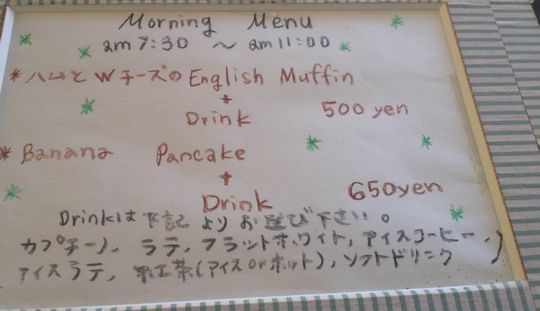 Morning Menu
am 7:30 ～ am 11:00
* ハムとWチーズのEnglish Muffin
+
Drink 500 yen
* Banana Pancake
+
Drink 650yen
Drinkは下記よりお選び下さい。
カプチーノ、ラテ、フラットホワイト、アイスコーヒー、
アイスラテ、紅茶(アイスorホット)、ソフトドリンク